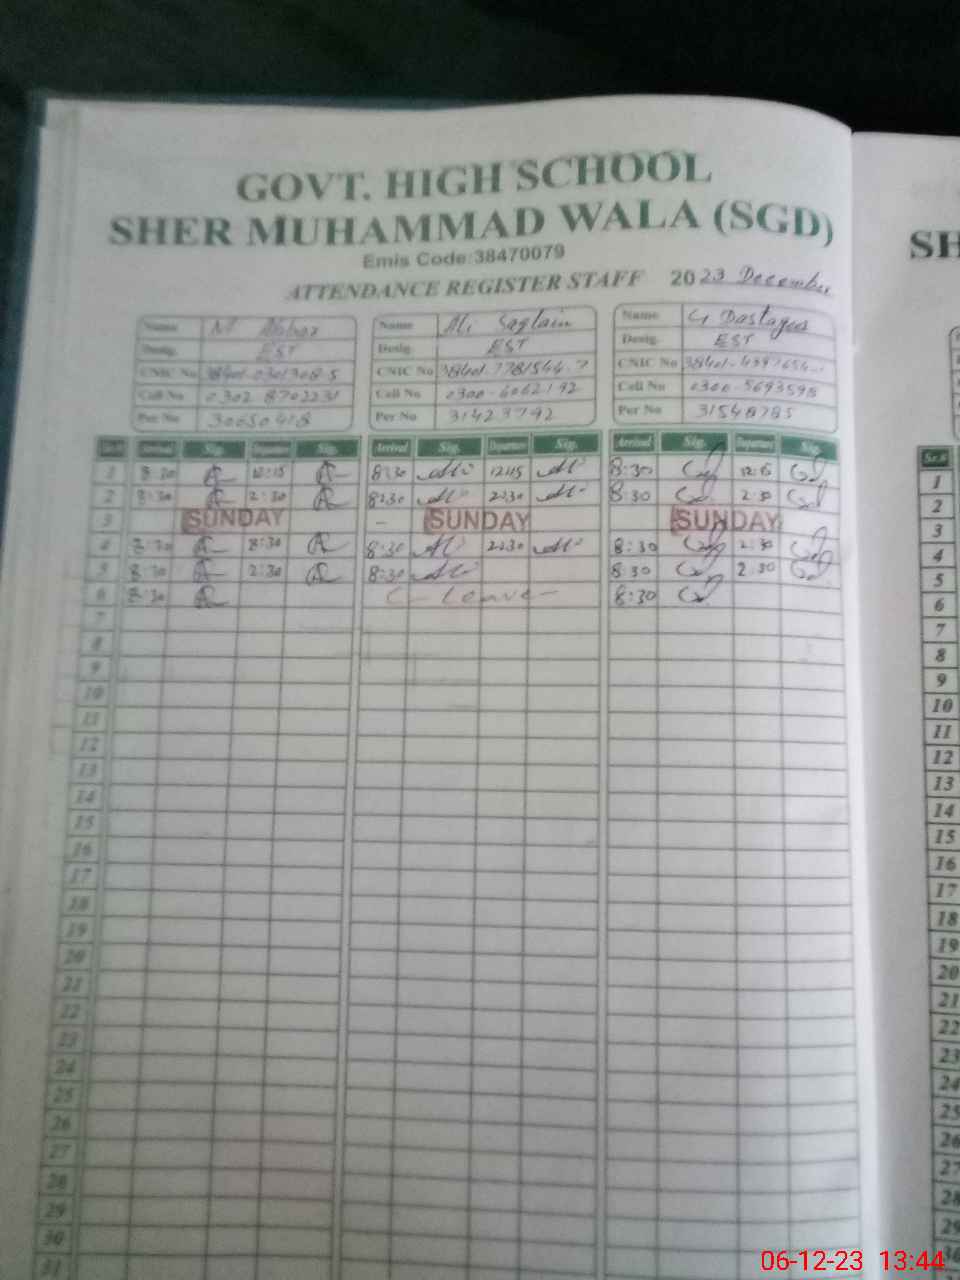 GOVT. HIGH SCHOOL
SHER MUHAMMAD WALA (SGD)
Emis Code:38470079
ATTENDANCE REGISTER STAFF 2023 December
Name M Abbas Name Ali Saqlain Name G Dastageer
Desig. EST Desig. EST Desig. EST
CNIC No CNIC No CNIC No
Cell No 0302 8702231 Cell No 0300-6062192 Cell No 0300-5693598
Per No 30650418 Per No 31423792 Per No 31548785
Sr.# Arrival Sig. Departure Sig. Arrival Sig. Departure Sig. Arrival Sig. Departure Sig.
1 8:30 12:15 8:30 12:15 8:30 12:15
2 8:30 2:30 8:30 2:30 8:30 2:30
3 SUNDAY – SUNDAY SUNDAY
4 8:30 8:30 8:30 2:30 8:30 2:30
5 8:30 2:30 8:30 8:30 2:30
6 8:30 Leave 8:30
7
8
9
10
11
12
13
14
15
16
17
18
19
20
21
22
23
24
25
26
27
28
29
30
31
SH
Sr.#
1
2
3
4
5
6
7
8
9
10
11
12
13
14
15
16
17
18
19
20
21
22
23
24
25
26
27
28
29
30
06-12-23 13:44